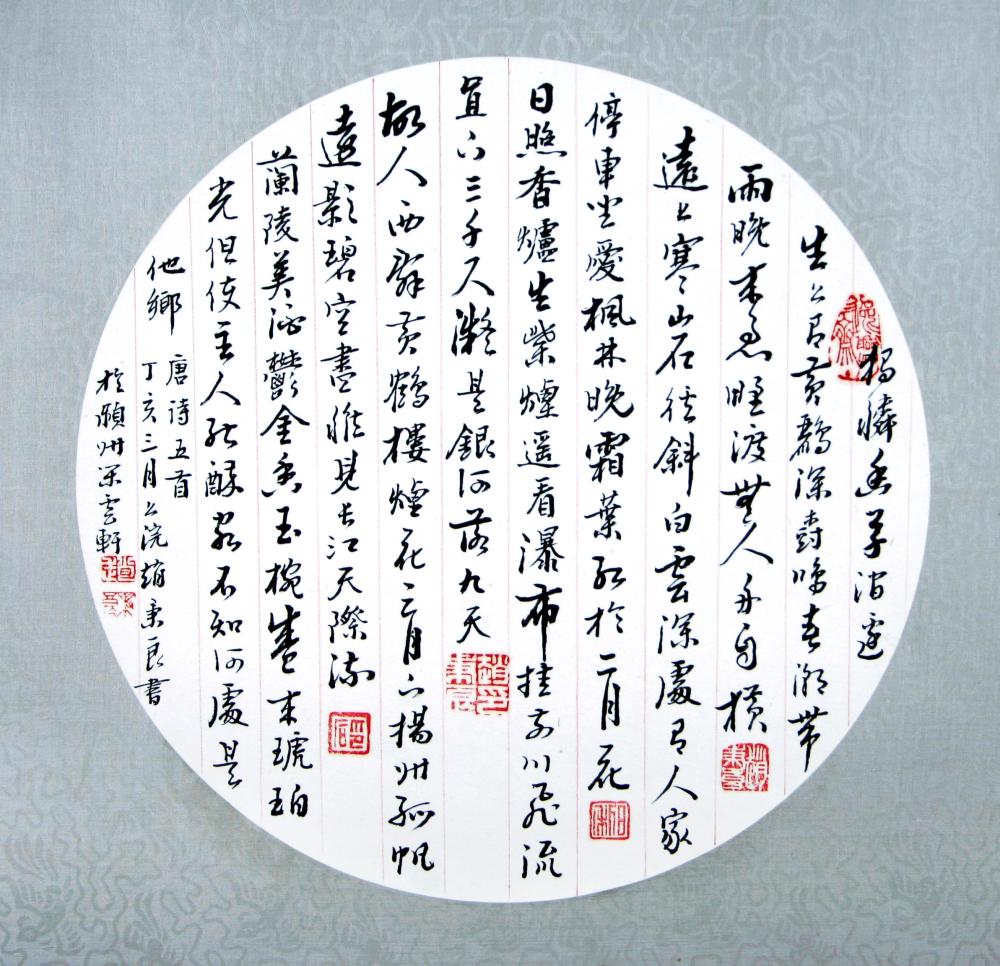 獨憐幽草澗邊
生上有黃鸝深樹鳴春潮帶
雨晚來急野渡無人舟自橫
遠上寒山石徑斜白雲深處有人家
停車坐愛楓林晚霜葉紅於二月花
日照香爐生紫煙遥看瀑布挂前川飛流
直下三千尺凝是銀河落九天
故人西辭黃鶴樓煙花三月下揚州孤帆
遠影碧空盡惟見長江天際流
蘭陵美酒鬱金香玉椀盛來琥珀
光但使主人能醉客不知何處是
他鄉
唐詩五首
丁亥三月上浣趙秉良書
於州雲軒